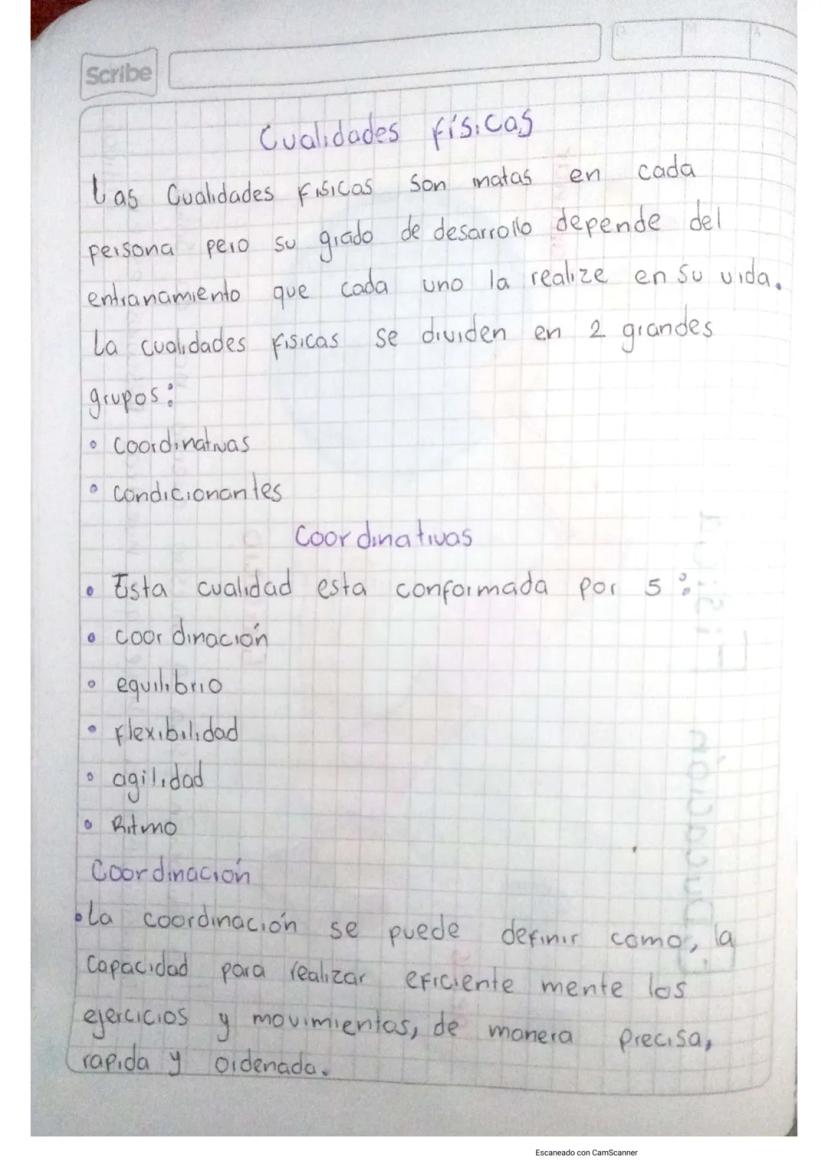 Scribe
D M A
Cualidades físicas
Las Cualidades fisicas son inatas en cada
persona pero su grado de desarrollo depende del
entranamiento que cada uno la realize en su vida.
La cualidades fisicas se dividen en 2 grandes
grupos:
• coordinativas
• condicionantes
Coordinativas
• Esta cualidad esta conformada por 5:
• coordinación
• equilibrio
• flexibilidad
• agilidad
• Ritmo
Coordinación
• la coordinación se puede definir como, la
capacidad para realizar eficiente mente los
ejercicios y movimientos, de manera precisa,
rapida y ordenada.
Escaneado con CamScanner